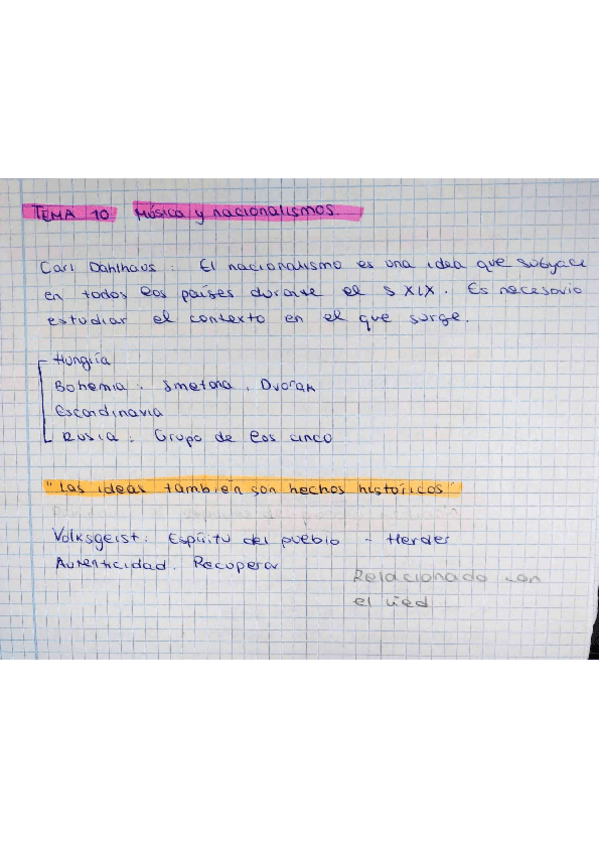 TEMA 10 Música y nacionalismos.
Carl Dahlhaus: El nacionalismo es una idea que subyace
en todos los países durante el S XIX. Es necesario
estudiar el contexto en el que surge.
Hungría
Bohemia: Smetana, Dvorak
Escandinavia
Rusia: Grupo de los cinco
"Las ideas también son hechos históricos"
Volksgeist: Espíritu del pueblo - Herder
Autenticidad. Recuperar
Relacionado con
el lied